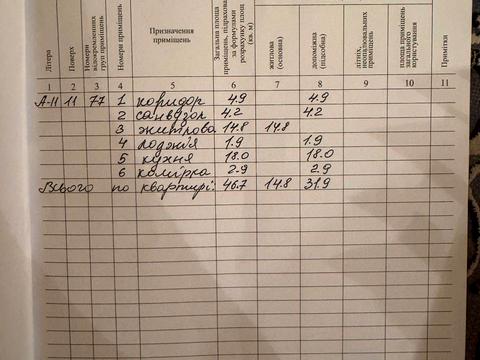 Літера
Поверх
Номери відокремлених груп приміщень
Номери приміщень
Призначення приміщень
Загальна площа приміщень, підрахована за формулами розрахунку площ (кв. м)
житлова (основна)
допоміжна (підсобна)
літніх, неопалювальних приміщень
площа приміщень загального користування
Примітки
1 2 3 4 5 6 7 8 9 10 11
А-11 11 77 1 коридор 4.9 4.9
2 санвузол 4.2 4.2
3 житлова 14.8 14.8
4 лоджія 1.9 1.9
5 кухня 18.0 18.0
6 комірка 2.9 2.9
Всього по квартирі: 46.7 14.8 31.9